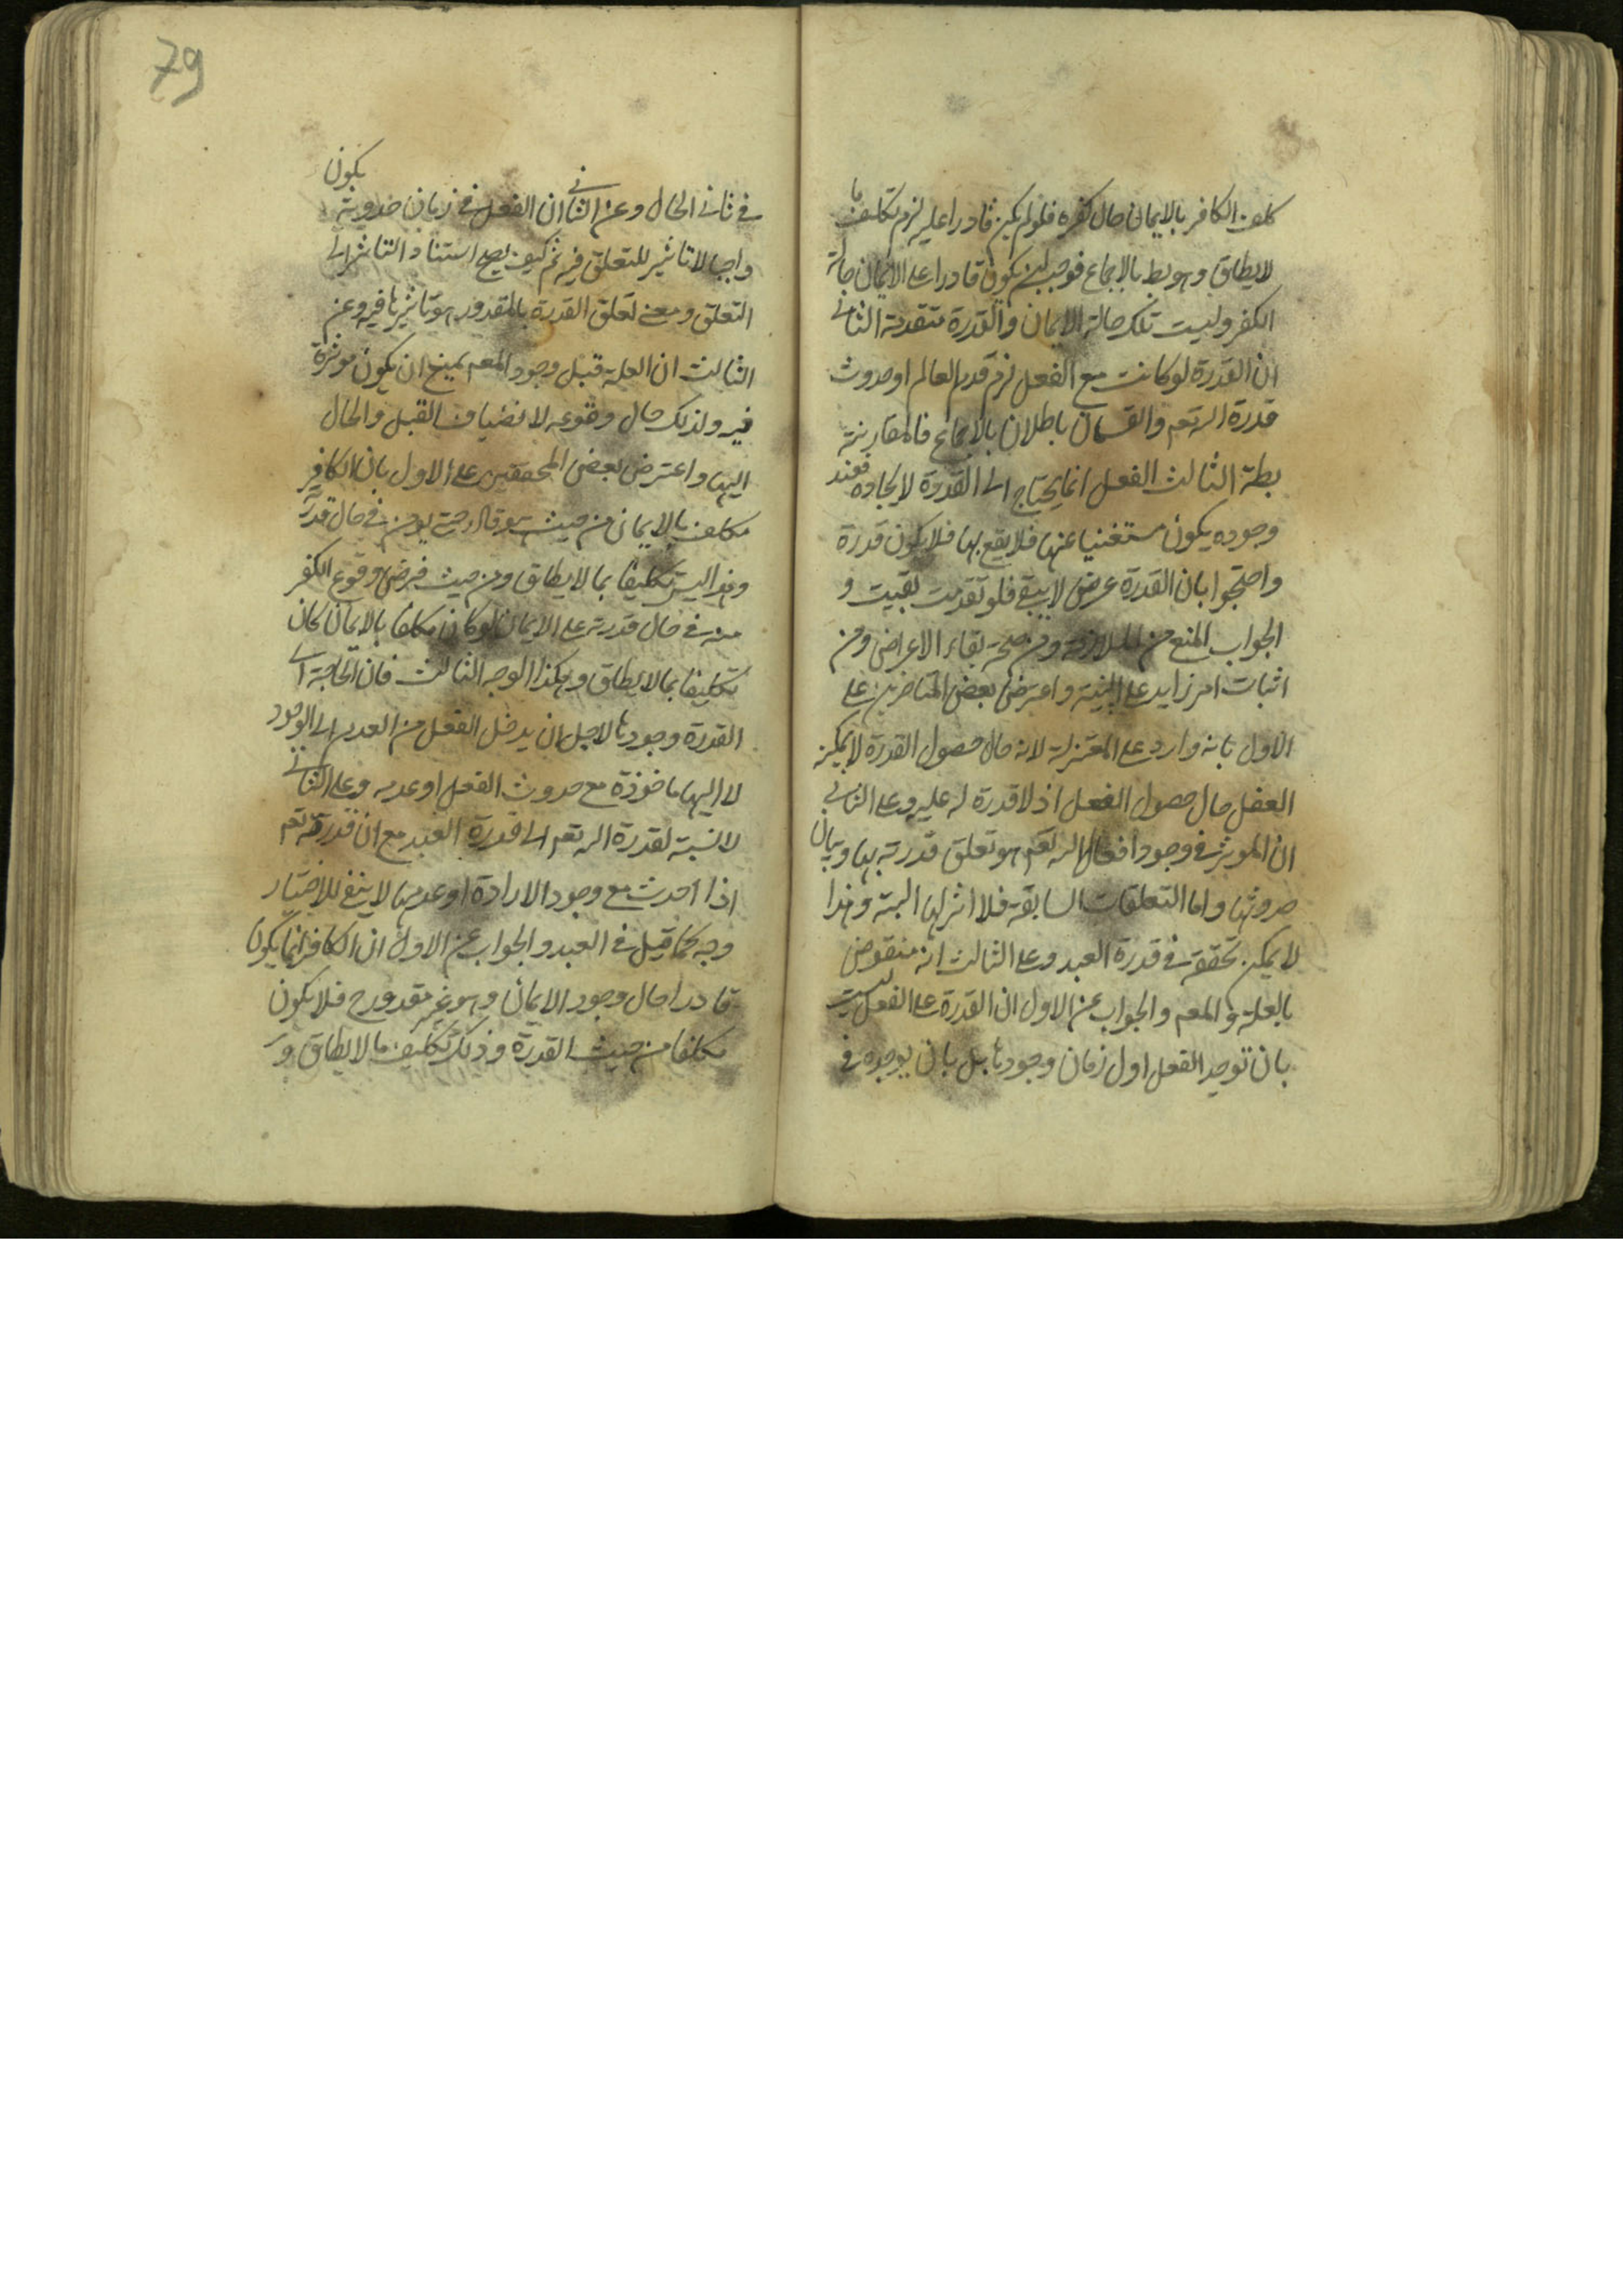 كلف الكافر بالايمان حال كفره فلو لم يكن قادرا عليه لزم تكليف ما
لايطاق وهو بط بالاجماع فوجب ان يكون قادرا على الايمان حالة
الكفر وليست تلك حالة الايمان والقدرة متقدمة الثانى
ان القدرة لو كانت مع الفعل لزم قدم العالم او حدوث
قدرة الله تعم والقسمان باطلان بالاجماع فالمقارنة
بطة الثالث الفعل انما يحتاج الى القدرة لايجاده فعند
وجوده يكون مستغنيا عنها فلا يقع بها فلا يكون قدرة
واحتجوا بان القدرة عرض لايبقى فلو تقدمت لبقيت و
الجواب المنع من الملازمة ومن صحة بقاء الاعراض ومن
اثبات امر زايد على البنية واعترض بعض المتاخرين على
الاول بانه وارد على المعتزلة لانه حال حصول القدرة لايمكنه
الفعل حال حصول الفعل اذ لاقدرة له عليه وعلى الثانى
ان الموثر فى وجود افعال الله تعم هو تعلق قدرته بها وبيان
حدوثها واما التعلقات السابقة فلا اثر لها البتة وهذا
لايمكن تحققه فى قدرة العبد وعلى الثالث انه منقوض
بالعلة والمعم والجواب عن الاول ان القدرة على الفعل ليست
بان توجد الفعل اول زمان وجودها بل بان يوجده فى
79
يكون
فى ثانى الحال وعن الثانى ان الفعل فى زمان حدوثه
واجبا لا تاثير للتعلق فيه ثم كيف يصح استناد التاثير الى
التعلق ومعنى تعلق القدرة بالمقدور هو تاثيرها فيه وعن
الثالث ان العلة قبل وجود المعم يمتنع ان يكون موثرة
فيه ولذلك حال وقوعه لانضياف القبل والحال
اليها واعترض بعض المحققين على الاول بان الكافر
مكلف بالايمان من حيث هو قادر حتى يومن فى حال قدرته
وهذا ليس تكليفا بما لايطاق ومن حيث فرض وقوع الكفر
منه فى حال قدرته على الايمان لو كان مكلفا بالايمان لكان
تكليفا بما لايطاق وهكذا الوجه الثالث فان الحاجة الى
القدرة وجودها لاجل ان يدخل الفعل من العدم الى الوجود
لا اليها ماخوذة مع حدوث الفعل او عدمه وعلى الثانى
لانسبة لقدرة الله تعم الى قدرة العبد مع ان قدرته تعم
اذا اخذت مع وجود الارادة او عدمها لايبقى للاختيار
وجه كما قيل فى العبد والجواب عن الاول ان الكافر انما يكون
قادرا حال وجود الايمان وهو غير مقدور ح فلا يكون
مكلفا من حيث القدرة وذلك تكليف ما لايطاق و